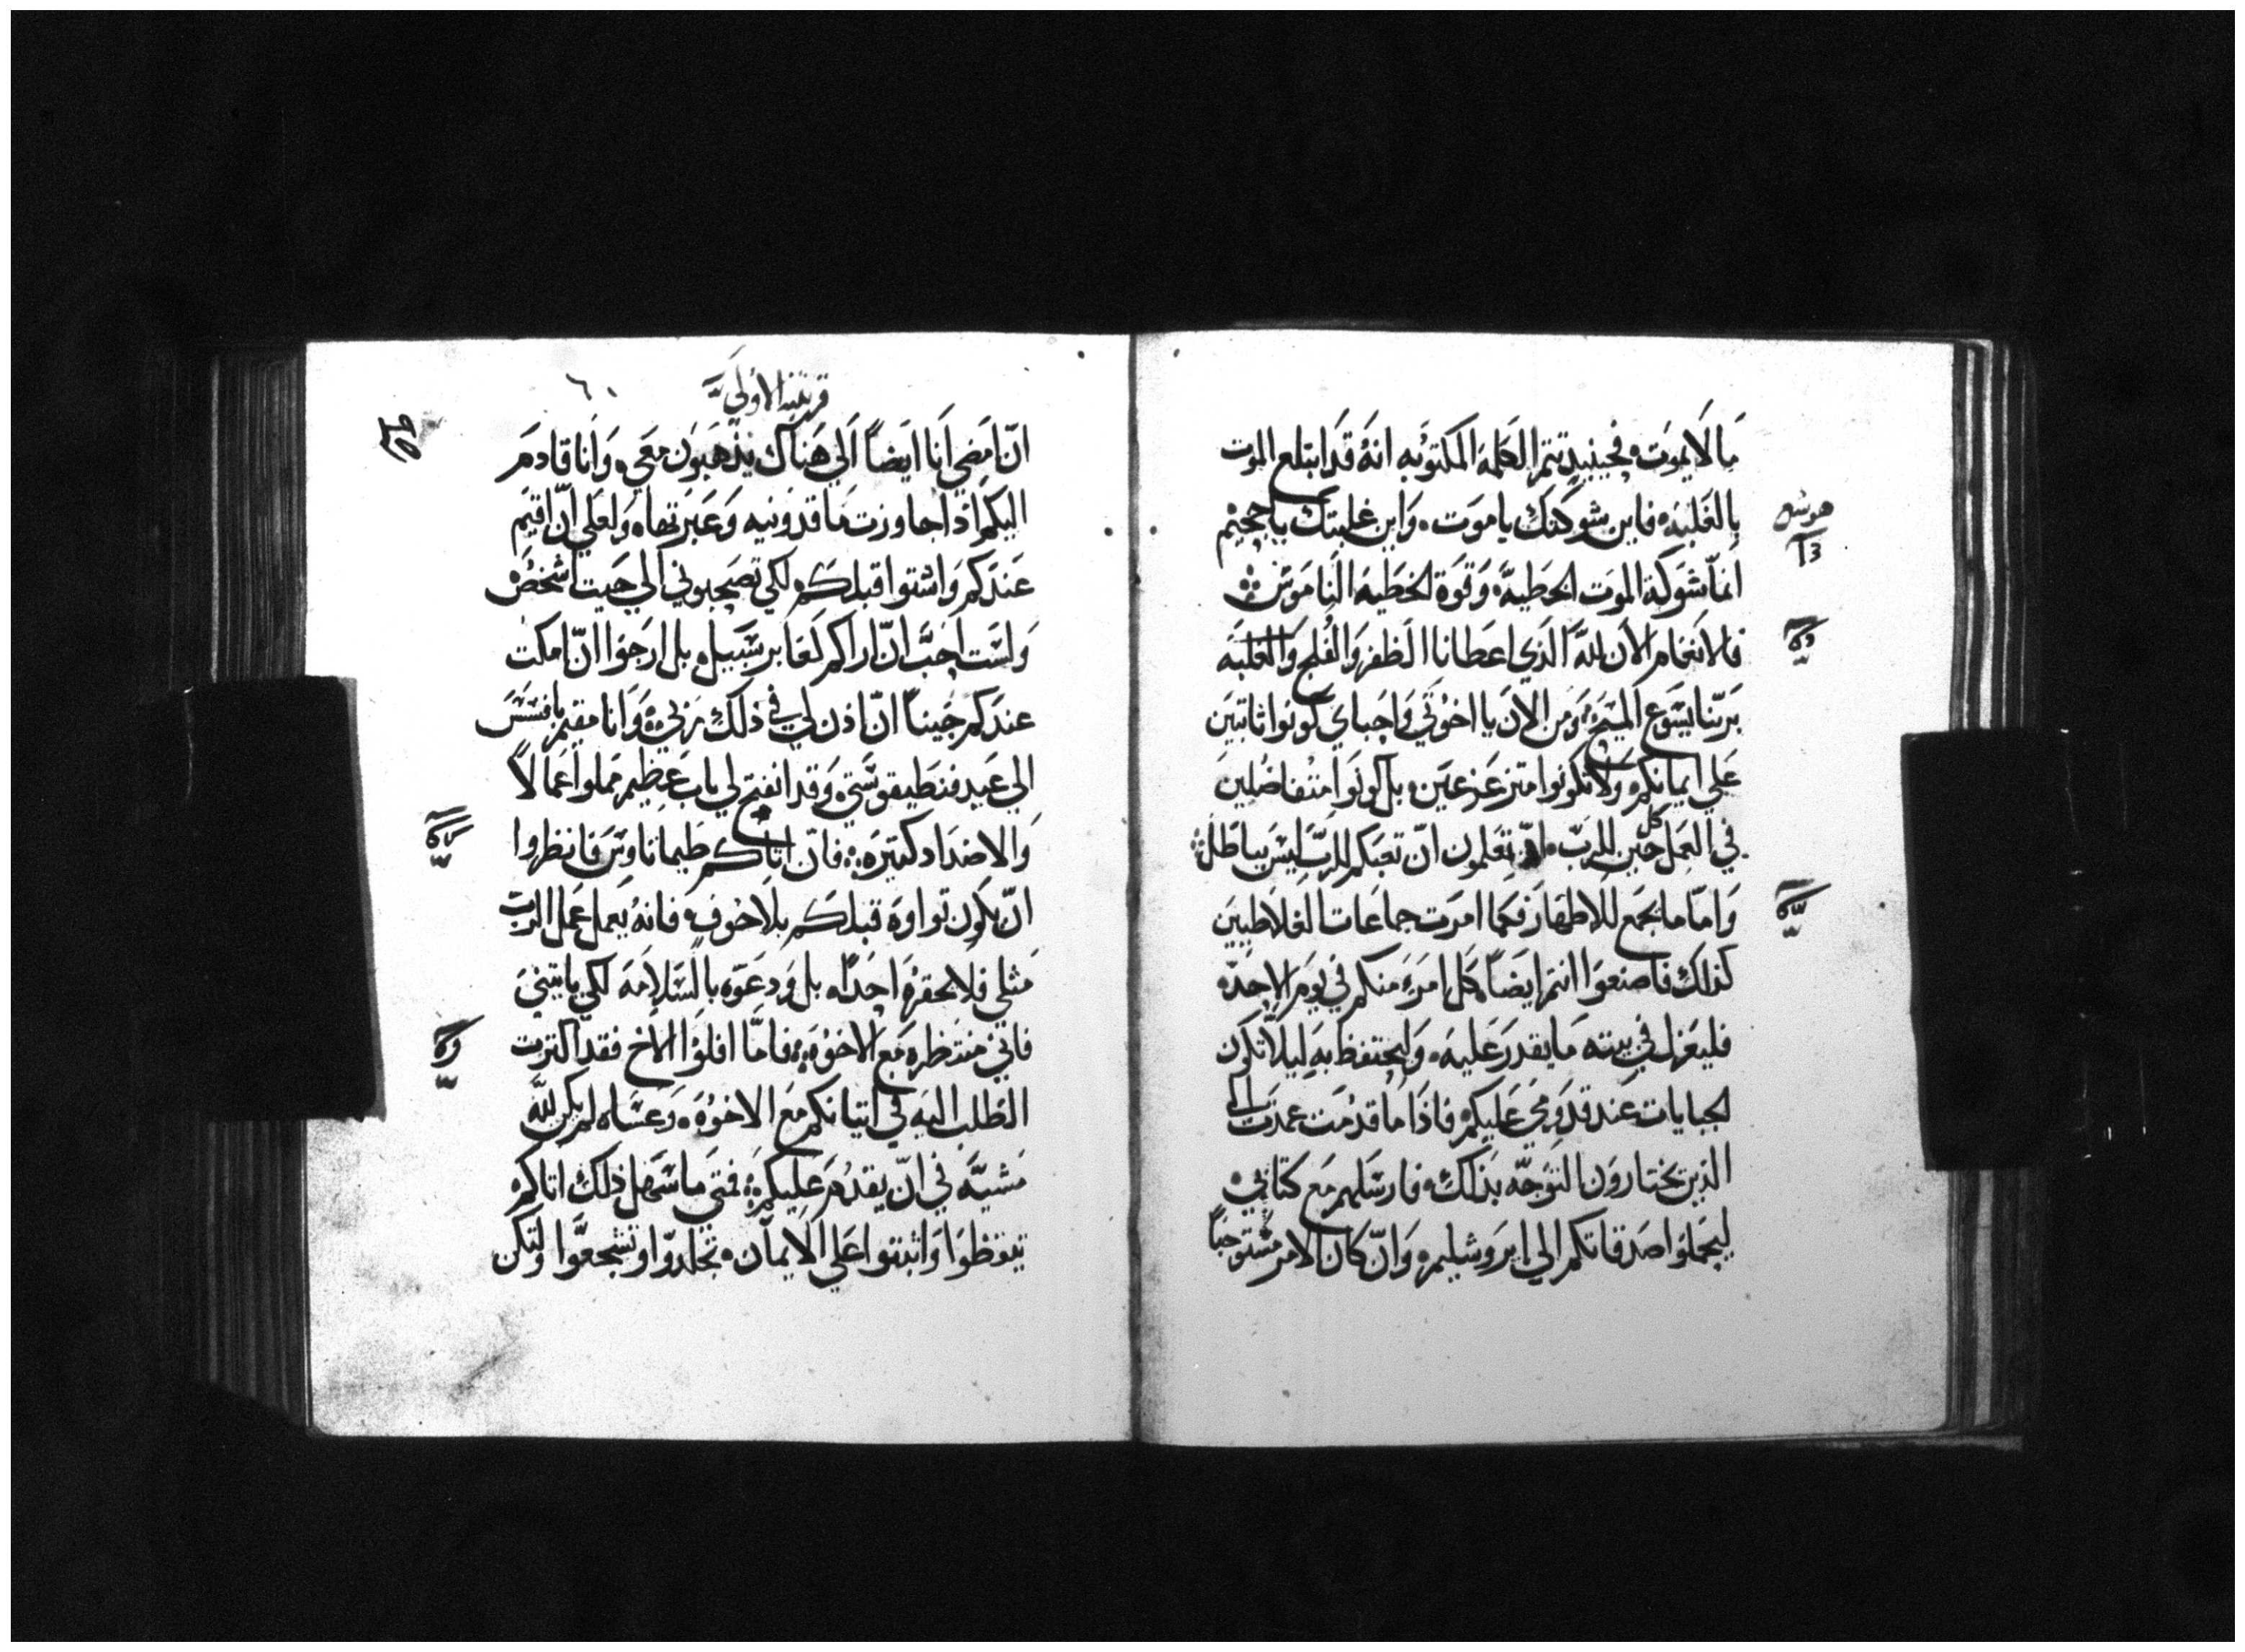 ما لا يموت، فحينيد تتم الكلمه المكتوبه انهُ قد ابتلع الموت
بالغلبه، فاين شوكتك ياموت، واين غلبتك ياجحيم
هوشع
13
انما شوكة الموت الخطيه، وقوة الخطيه الناموس
فالانغام الان لله الذي اعطانا الظفر والفلج والغلبه
بربنا يسوع المسيح، ومن الان يا اخوتي واحباي كونوا ثابتين
علي ايمانكم، ولا تكونوا متزعزعين، بل كونوا متفاضلين
في العمل كل حين للرب، تعلمون انّ تعبكم للرب ليس بباطل
وامّا ما يجمع للاطهار فكما امرت جماعات الغلاطيين
كذلك فاصنعوا انتم ايضاً، كل امرء منكم في يوم الاحد،
فليعزل في بيته ما يقدر عليه، وليحتفظ به ليلا تكون
الجبايات عند قدومي عليكم، فاذا ما قدمت عمدت الي
الذين يختارون التوجّه بذلك، فارسلهم مع كتابي،
ليحملوا صدقاتكم الي ايروشليم، وانّ كان الامر مستوجباً
قرنتيه الاولي
٦٠
انّ امضي انا ايضاً الي هناك يذهبون معي، وانا قادم
اليكم اذا جاوزت ماقدونيه وعبرتها، ولعلي انّ اقيم
عندكم واشتوا قبلكم لكي تصحبوني الي حيت اشخص
ولست احبّ انّ اراكم كعابر سبيل، بل ارجوا انّ امكت
عندكم حيناً انّ اذن لي في ذلك ربي، وانا مقيم بافسس
الي عيد فنطيقوسّتي، وقد انفتح لي باب عظيم مملوا اعمالاً
والاضداد كتيره، فان اتاكم طيماتاوس فانظروا
انّ يكون تواوه قبلكم بلا خوف، فانهُ يعمل عمل الرب
متلي فلا يحقره احداً، بل ودعوّه بالسلامه لكي ياتيني
فاني منتظره مع الاخوه، فامّا افلوا الاخ فقد اكترت
الطلب اليه في اتيانكم مع الاخوه، وعساه لم يكن لله
مشيّه في انّ يقدم عليكم، فمتي ما سهل ذلك اتاكم
تيقظوا واثبتوا علي الايمان، تجلدوّا وتشجعوّا ولتكن